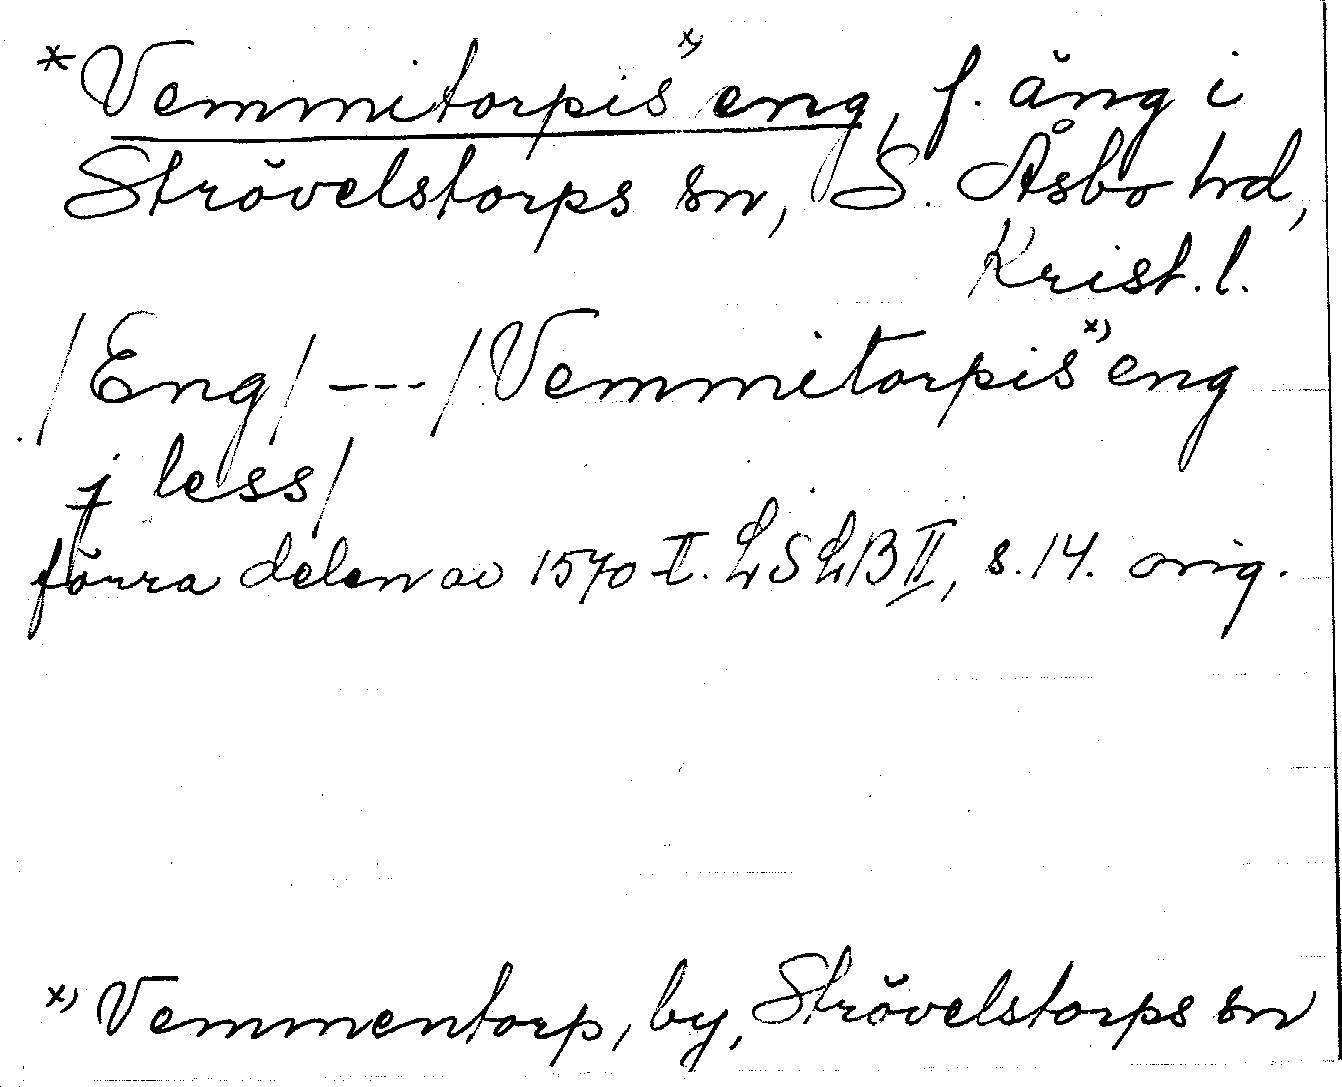 *Vemmitorpis x) eng, f. äng i
Strövelstorps sn, S. Åsbo hd,
Krist. l.
/Eng/ --- /Vemmitorpis x) eng
j less/
förra delen av 1570-t. LSLB II, s. 14. orig.
x) Vemmentorp, by, Strövelstorps sn